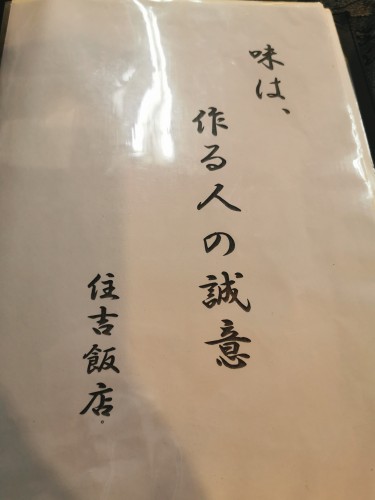 味は、
作る人の誠意
住吉飯店